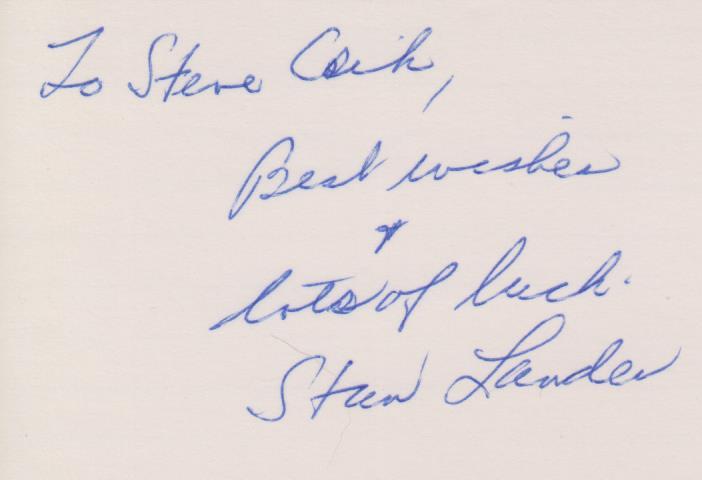 To Steve Csik,
Best wishes
&
lots of luck.
Stan Landes